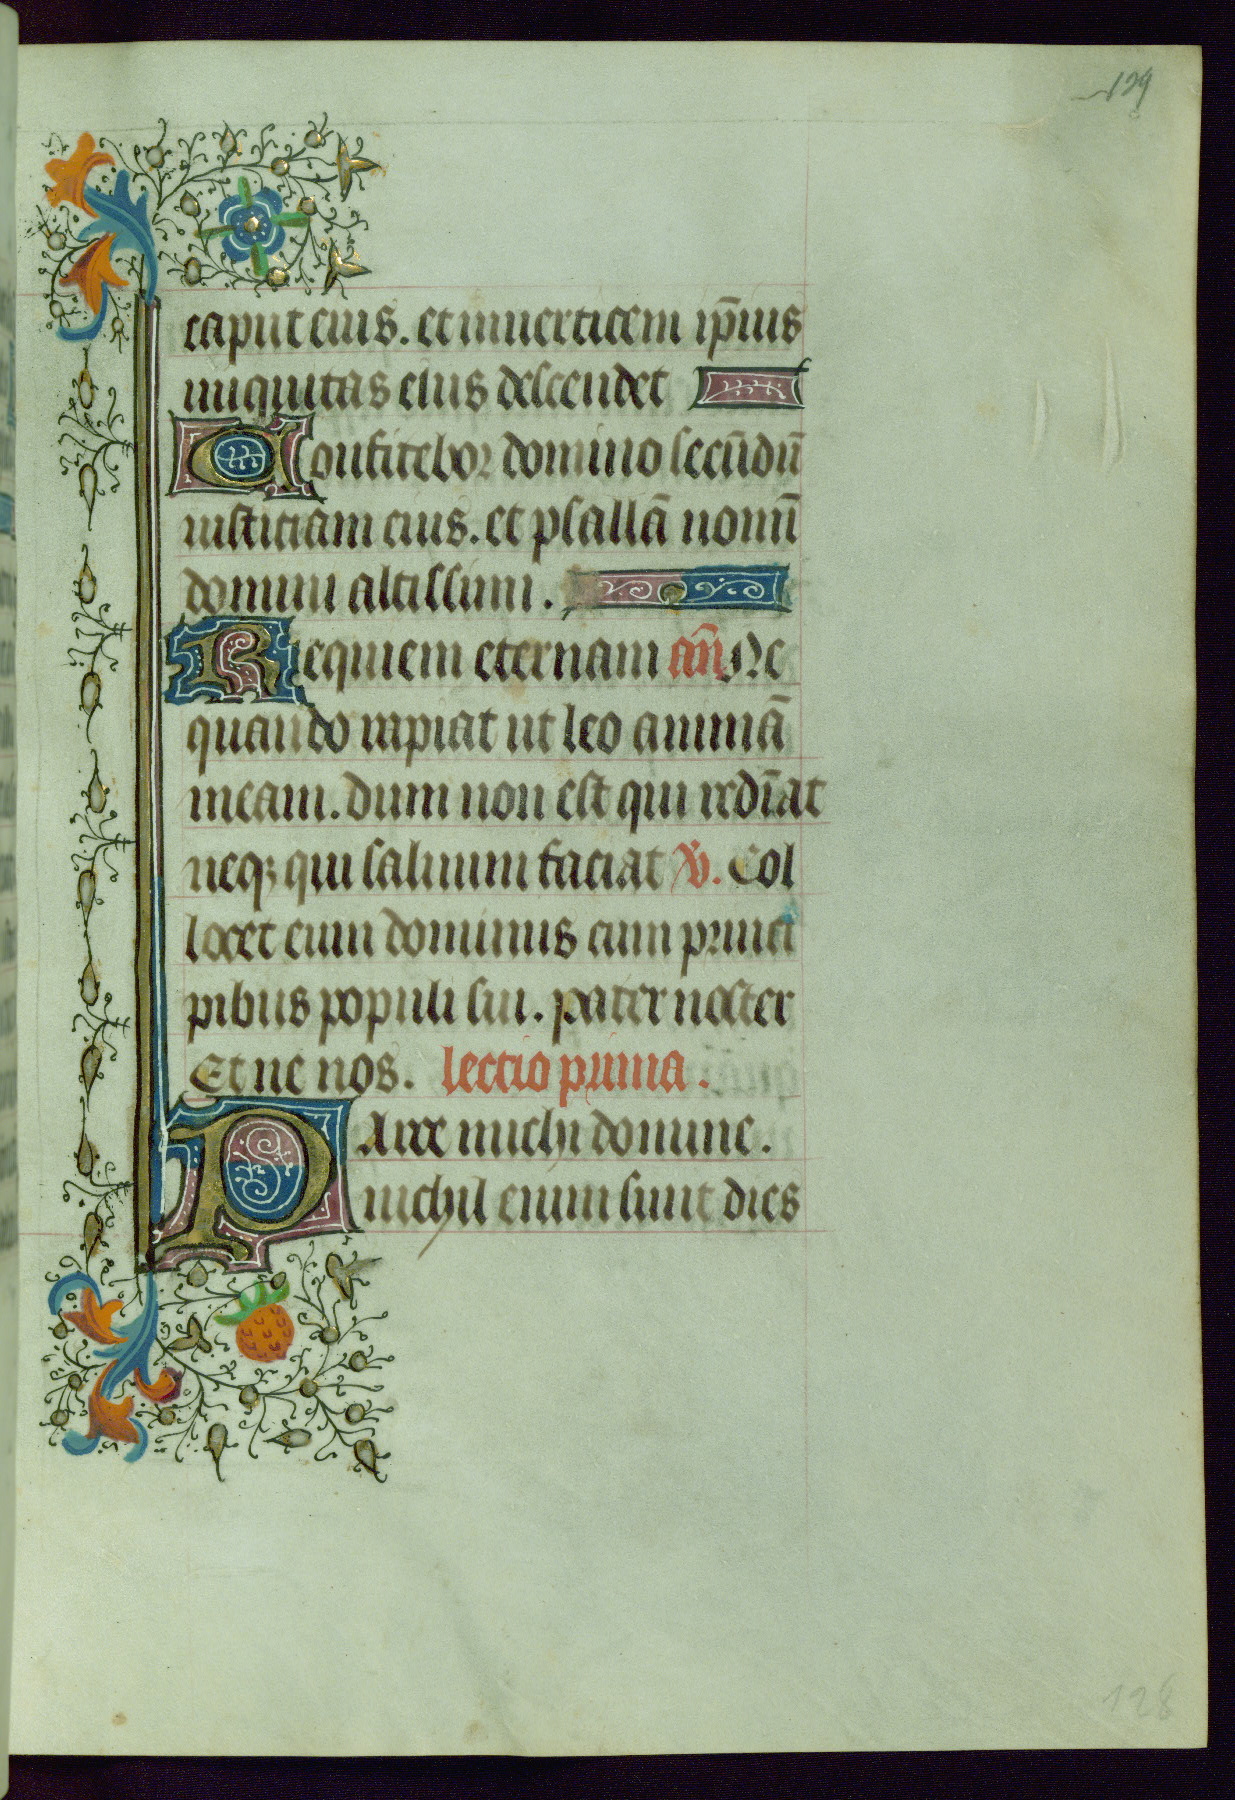 129
caput eius. et in uerticem ip̄ius
iniquitas eius descendet
Confitebor domino secūdū
iusticiam eius. et psallā nomī
domini altissimi.
Requiem eternam an̄ Ne
quando rapiat ut leo animā
meam. dum non est qui redīat
neqꝫ qui saluum faciat V̄. Col
locet eum dominus cum princi
pibus populi sui. pater noster
Et ne nos. lectio prima.
Parce michi domine.
nichil enim sunt dies
128